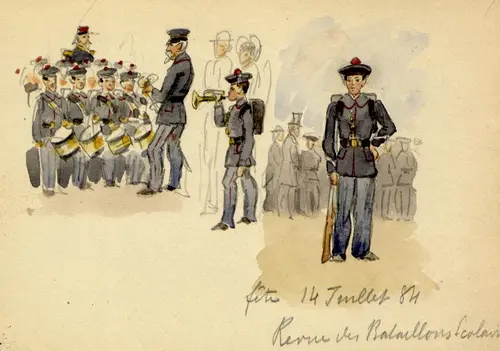 fête 14 Juillet 84
Revue des Bataillons Scolair